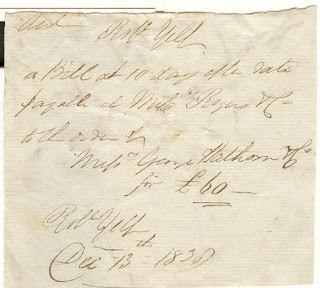 Robt. Yelf
a Bill at 10 days after date
payable at Messrs Rogers & Co
to the order of
Messrs George Hathorn & Co
for £60 —
Robt. Yelf
Dec 13th 1838